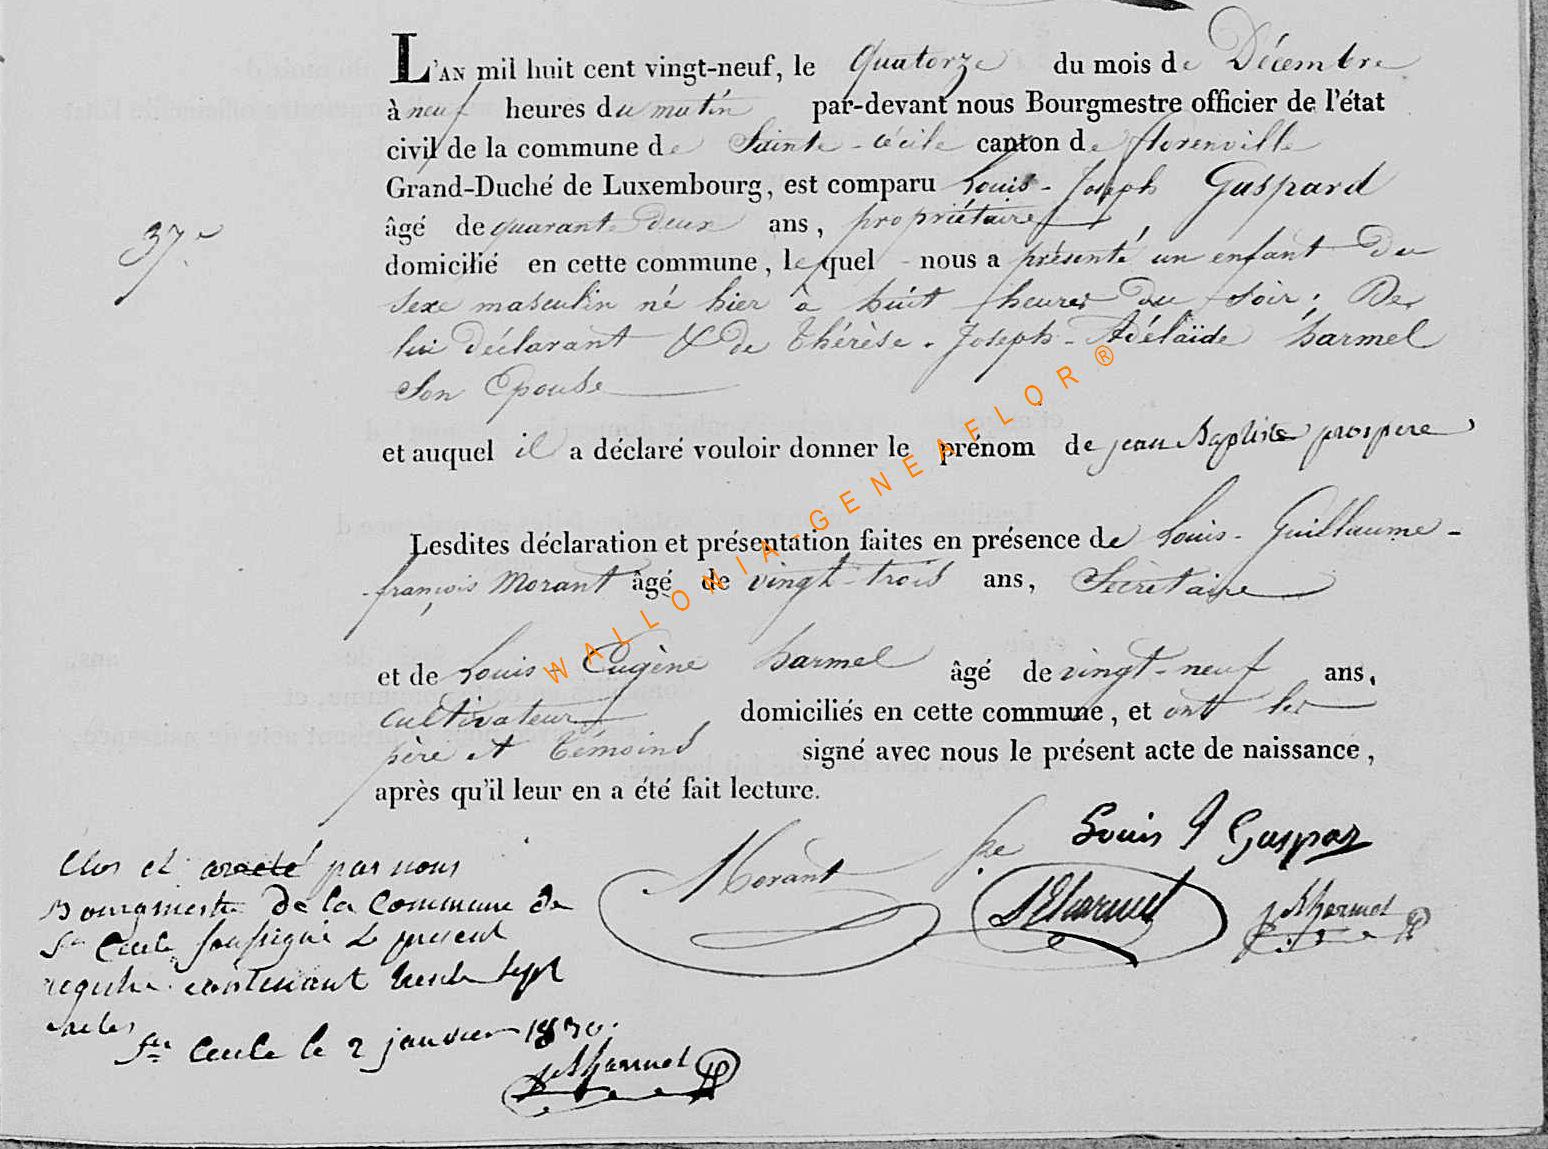 L'AN mil huit cent vingt-neuf, le Quatorze du mois de Décembre
à neuf heures du matin par-devant nous Bourgmestre officier de l'état
civil de la commune de Sainte-Cécile canton de florenville
Grand-Duché de Luxembourg, est comparu Louis-Joseph Gaspard
37e
âgé de quarante deux ans, propriétaire
domicilié en cette commune, lequel nous a présenté un enfant du
sexe masculin né hier à huit heures du soir, De
lui déclarant & de Thérèse-Joseph-Adélaïde harmel
Son Epouse
et auquel il a déclaré vouloir donner le prénom de jean Baptiste prospere
Lesdites déclaration et présentation faites en présence de Louis-Guillaume-
-françois Morant âgé de vingt-trois ans, Secrétaire
et de Louis-Eugène harmel âgé de vingt-neuf ans,
cultivateur, domiciliés en cette commune, et ont les
père et témoins signé avec nous le présent acte de naissance,
après qu'il leur en a été fait lecture.
Louis J Gaspar
Morant
LE harmel
harmel
Clos et arreté par nous
Bourgmestre De la Commune de
Ste Cecile soussigné le present
registre contenant trente sept
actes
Ste Cecile le 2 janvier 1830.
harmel
WALLONIA-GENEAFLOR®